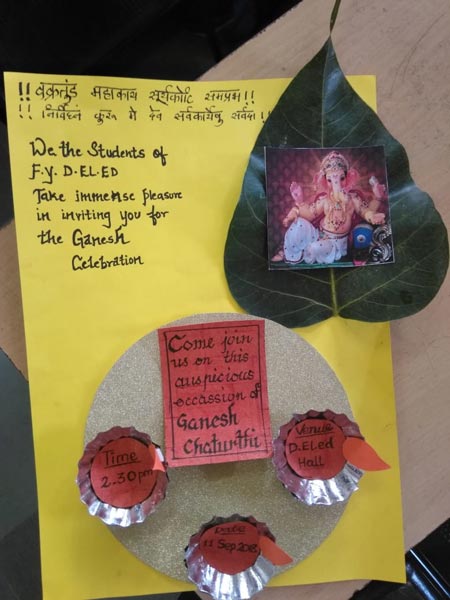 !! वक्रतुंड महाकाय सूर्यकोटि समप्रभ !!
!! निर्विघ्नं कुरू मे देव सर्वकार्येषु सर्वदा !!
We the Students of
F.Y. D.EL.ED
Take immense pleasure
in inviting you for
the Ganesh
Celebration
Come join
us on this
auspicious
occassion of
Ganesh
Chaturthi
Time
2.30 pm
Venue
D.El.ed
Hall
Date
11 Sep